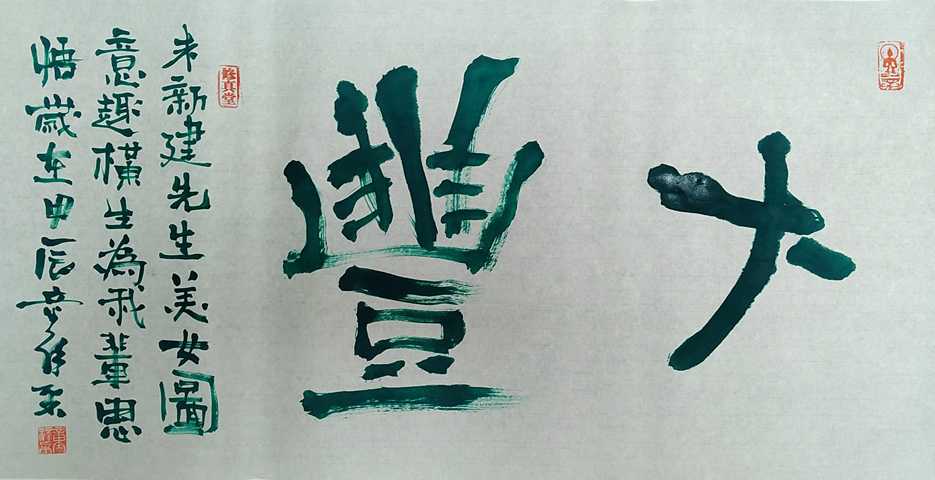 大豐
朱新建先生美女圖
意趣橫生為我輩思
悟歲在甲辰
修真堂